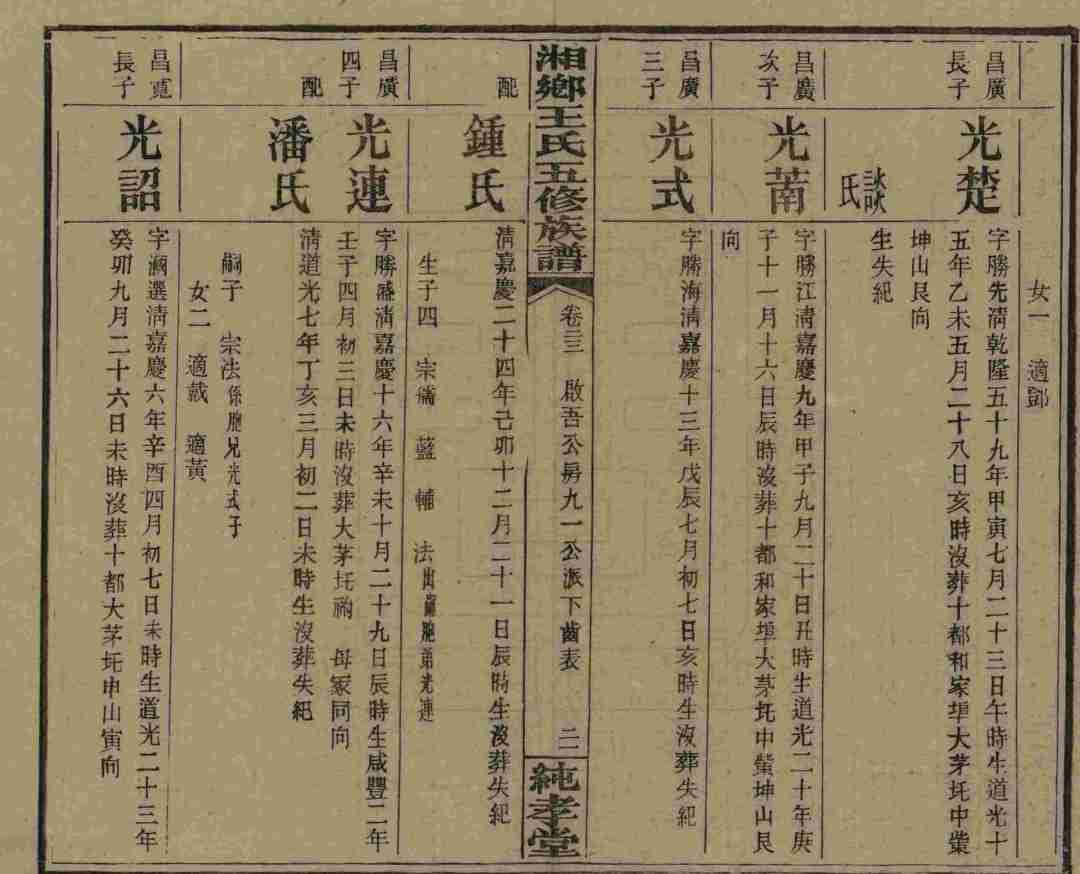 女一 適鄧
昌廣長子
光楚
字勝先清乾隆五十九年甲寅七月二十三日午時生道光十
五年乙未五月二十八日亥時沒葬十都和家埠大茅圫中塋
坤山艮向
談氏
生失紀
昌廣次子
光萳
字勝江清嘉慶九年甲子九月二十日丑時生道光二十年庚
子十一月十六日辰時沒葬十都和家埠大茅圫中塋坤山艮
向
昌廣三子
光式
字勝海清嘉慶十三年戊辰七月初七日亥時生沒葬失紀
湘鄉王氏五修族譜
卷三三 啟吾公房九一公派下齒表 二一
純孝堂
配
鍾氏
清嘉慶二十四年己卯十二月二十一日辰時生沒葬失紀
生子四 宗 藍 輔 法出嗣胞弟光連
昌廣四子
光連
字勝盛清嘉慶十六年辛未十月二十九日辰時生咸豐二年
壬子四月初三日未時沒葬大茅圫 母冢同向
配
潘氏
清道光七年丁亥三月初二日未時生沒葬失紀
嗣子 宗法係胞兄光式子
女二 適戴 適黃
昌寬長子
光詔
字 選清嘉慶六年辛酉四月初七日未時生道光二十三年
癸卯九月二十六日未時沒葬十都大茅圫申山寅向